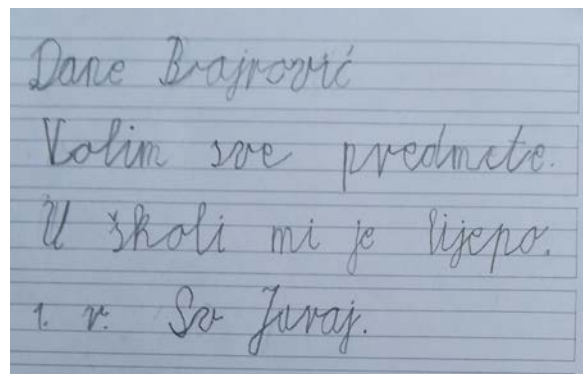 Dane Bajrović
Volim sve predmete.
U školi mi je lijepo.
1. r. Sv Juraj.